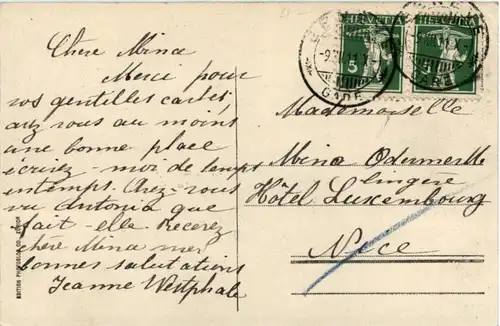 Chère Mina
Merci pour
vos gentilles cartes,
avez vous au moins
une bonne place
écrivez-moi de temps
en temps. Chez-vous
vu Antonia que
fait-elle Recevez
chère Mina mes
bonnes salutations
Jeanne Westphale
HELVETIA HELVETIA
5
GENÈVE
GARE
Mademoiselle
Mina Odermatt
lingère
Hôtel Luxembourg
Nice